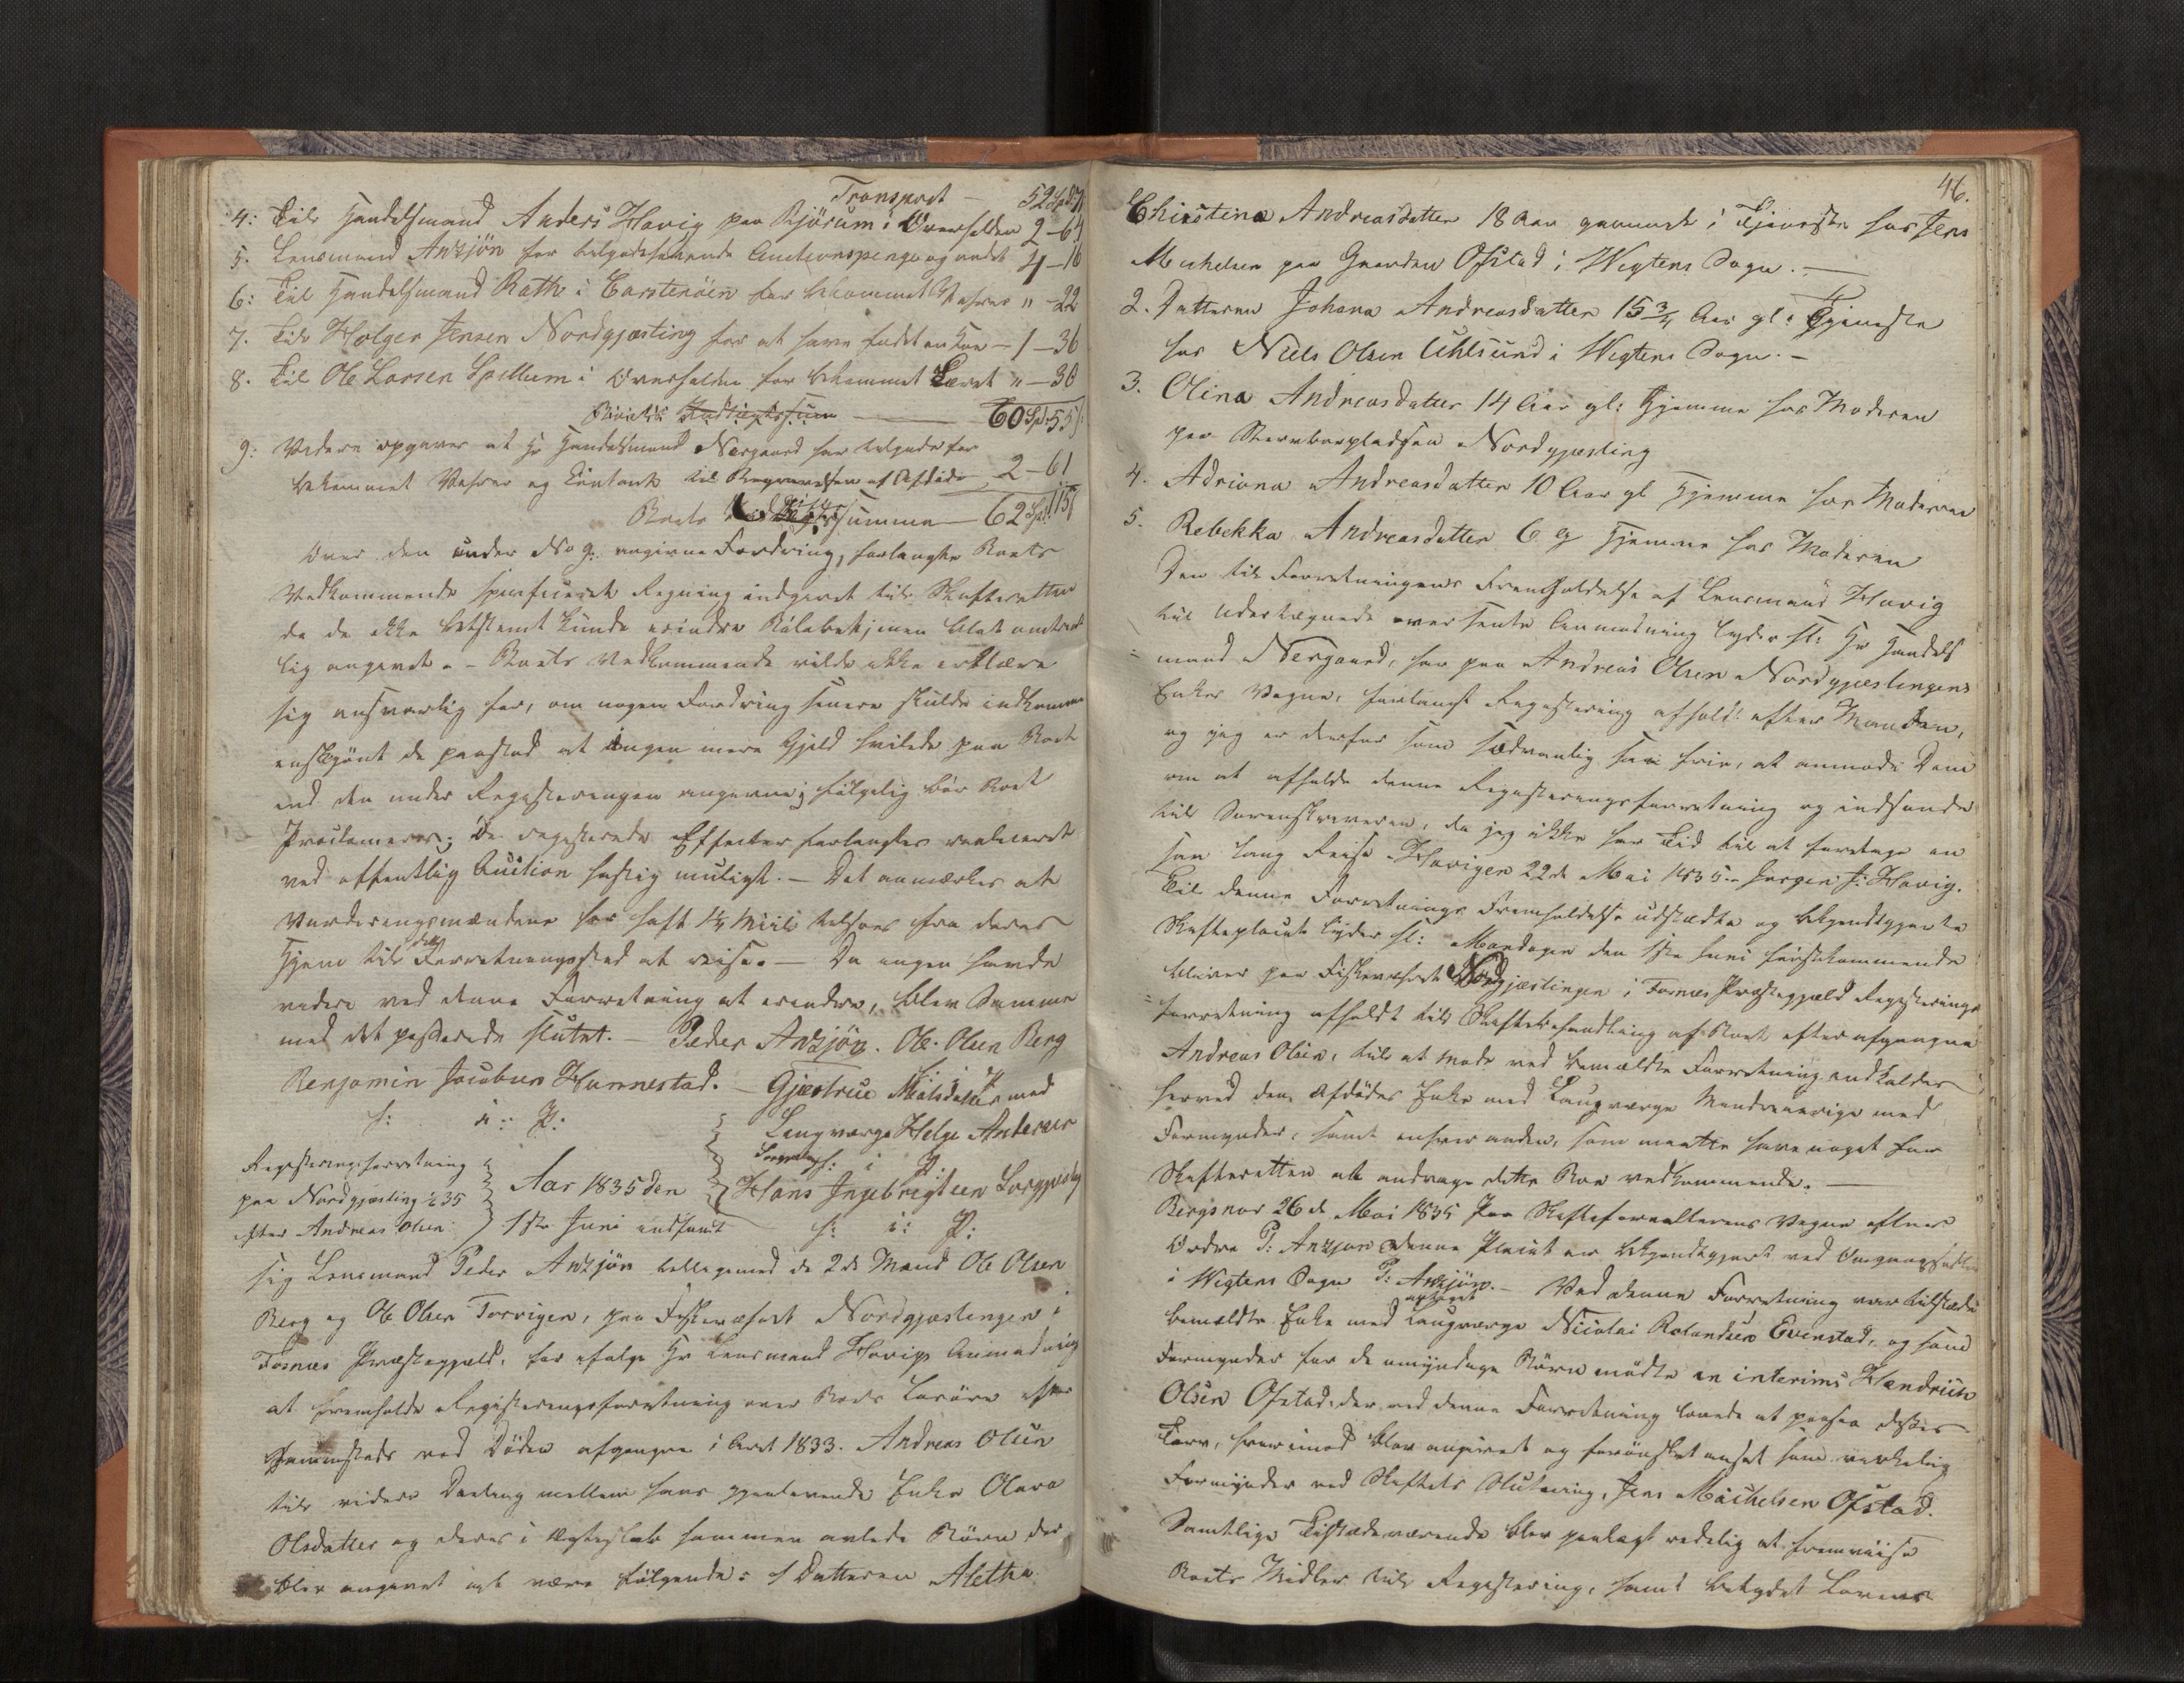 Transport — 52
4: Til Handelsmand Anders Havig paa Bjørum i Overhalden 2–64
5. Lensmand Anzjøn for tilgodehavende Auctionspenge og andet 4–16
6: Til Handelsmand Rath i Carstenøen for bekommet Vahrer " –22
7. Til Holger Jensen Nordgjæsling for at have fodet en Koe – 1–36
8. Til Ole Larsen Spillum i Overhalden for bekommet Læret " –30
60 Spd 55 s:
9: Videre opgaves at Hr Handelsmand Nergaard har tilgode for
bekommet Vahrer og Contant til Begravelsen af Afdøde 2–61
Boets summa — 62 Spd 115
Over den under No 9. angivne Fordring, forlangte Boets
Vedkommende specificeret Regning indgivet til Skifteretten
da de ikke bestemt kunde erindre Beløbet, men blot omtrent
lig angivet. – Boets Vedkommende vilde ikke erklære
sig ansvarlig for, om nogen Fordring senere skulde indkomme
enskjønt de paastod at ingen mere Gjeld hvilede paa Boet
end den under Registeringen angivne; følgelig bør Boet
Proclameres; De registerede Effecter forlangtes realiseret
ved offentlig Auction hastig muligst. – Det anmærkes at
Vurderingsmændene har haft 1¼ Miil til Søes fra deres
Hjem til dette Forretningssted at reise. — Da ingen havde
videre ved denne Forretning at erindre, blev Samme
med det passerede sluttet. – Peder Anzjøn. Ole Olsen Berg
Benjamin Jacobsen Hunnestad. – Gjertrue Nilsdatter med
h: i: P: Laugværge Helge Andersen
Registeringsforretning
paa Nordgjæsling 1/6 35
efter Andreas Olsen
Aar 1835 den
1ste Juni indfandt
h: i P
Hans Ingebrigtsen
h: i: P:
sig Lensmand Peder Anzjøn tilligemed de 2de Mænd Ole Olsen
Berg og Ole Olsen Torvigen, paa Fiskeværet Nordgjæslingen i
Fosnæs Præstegjæld, for ifølge Hr Lensmand Havigs Anmodning
at fremholde Registeringsforretning over Boets Løsøre efter
Sammesteds ved Døden afgangne i Aaret 1833. Andreas Olsen
til videre Deeling mellem hans gjenlevende Enke Olava
Olsdatter og deres i Ægteskab sammen avlede Børn der
blev angivet at være følgende: 1 Datteren Aletha
46.
Christina Andreasdatter 18 Aar gammel i Tjeneste hos Jens
Michelsen paa Gaarden Ofstad i Wigtens Sogn. —
2. Datteren Johana Andreasdatter 15¾ Aar gl: Tjeneste
hos Niels Olsen Uhlsund i Wigtens Sogn. –
3. Olina Andreasdatter 14 Aar gl: Hjemme hos Moderen
paa Stervboepladsen Nordgjæsling
4. Adriana Andreasdatter 10 Aar gl Hjemme hos Moderen
5. Rebekka Andreasdatter 6 g Hjemme hos Moderen
Den til Forretningens Fremholdelse af Lensmand Havig
til Undertegnede oversente Anmodning lyder sl: Hr Handels
= mand Nergaard, har paa Andreas Olsen Nordgjæslingens
Enkes Vegne, forlangt Registering afholdt efter Manden,
og jeg er derfor som sædvanlig saa frie, at anmode Dem
om at afholde denne Registeringsforretning og indsende
til Sorenskriveren, da jeg ikke har Tid til at foretage en
saa lang Reise. Havigen 22de Mai 1835. Jørgen J: Havig.
Til denne Forretnings Fremholdelse udstædte og bekjendtgjorte
Skifteplacat lyder sl: Mandagen den 1ste Juni førstkommende
bliver paa Fiskeværet Nordgjæslingen i Fosnæs Præstegjæld Registerings
= forretning afholdt til Skiftebehandling af Boet efter afgangne
Andreas Olsen, til at møde ved bemældte Forretning indkaldes
herved den Afdødes Enke med Laugværge Mindreaarige med
Formynder, samt enhver anden, som maatte have noget for
Skifteretten at andrage dette Boe vedkommende. —
Bergsnov 26de Mai 1835 Paa Skifteforvalterens Vegne efter
Ordre P: Anzjøn Denne Placat er bekjendtgjort ved
i Wigtens Sogn P: Anzjøn. – Ved denne Forretning var tilstæde
bemældte Enke med antaget Laugværge Nicolai Rolandsen Evenstad, og som
Formynder for de umyndige Børn mødte en interims Hendrich
Olsen Ofstad, der ved denne Forretning lovede at paasee disses
Tarv, hvorimod blev angivet og forønsket ansat som virkelig
Formynder ved Skiftets Slutning, Jens Michelsen Ofstad.
Samtlige Tilstædeværende blev paalagt redelig at fremviise
Boets Midler til Registering, samt betydet Lovens